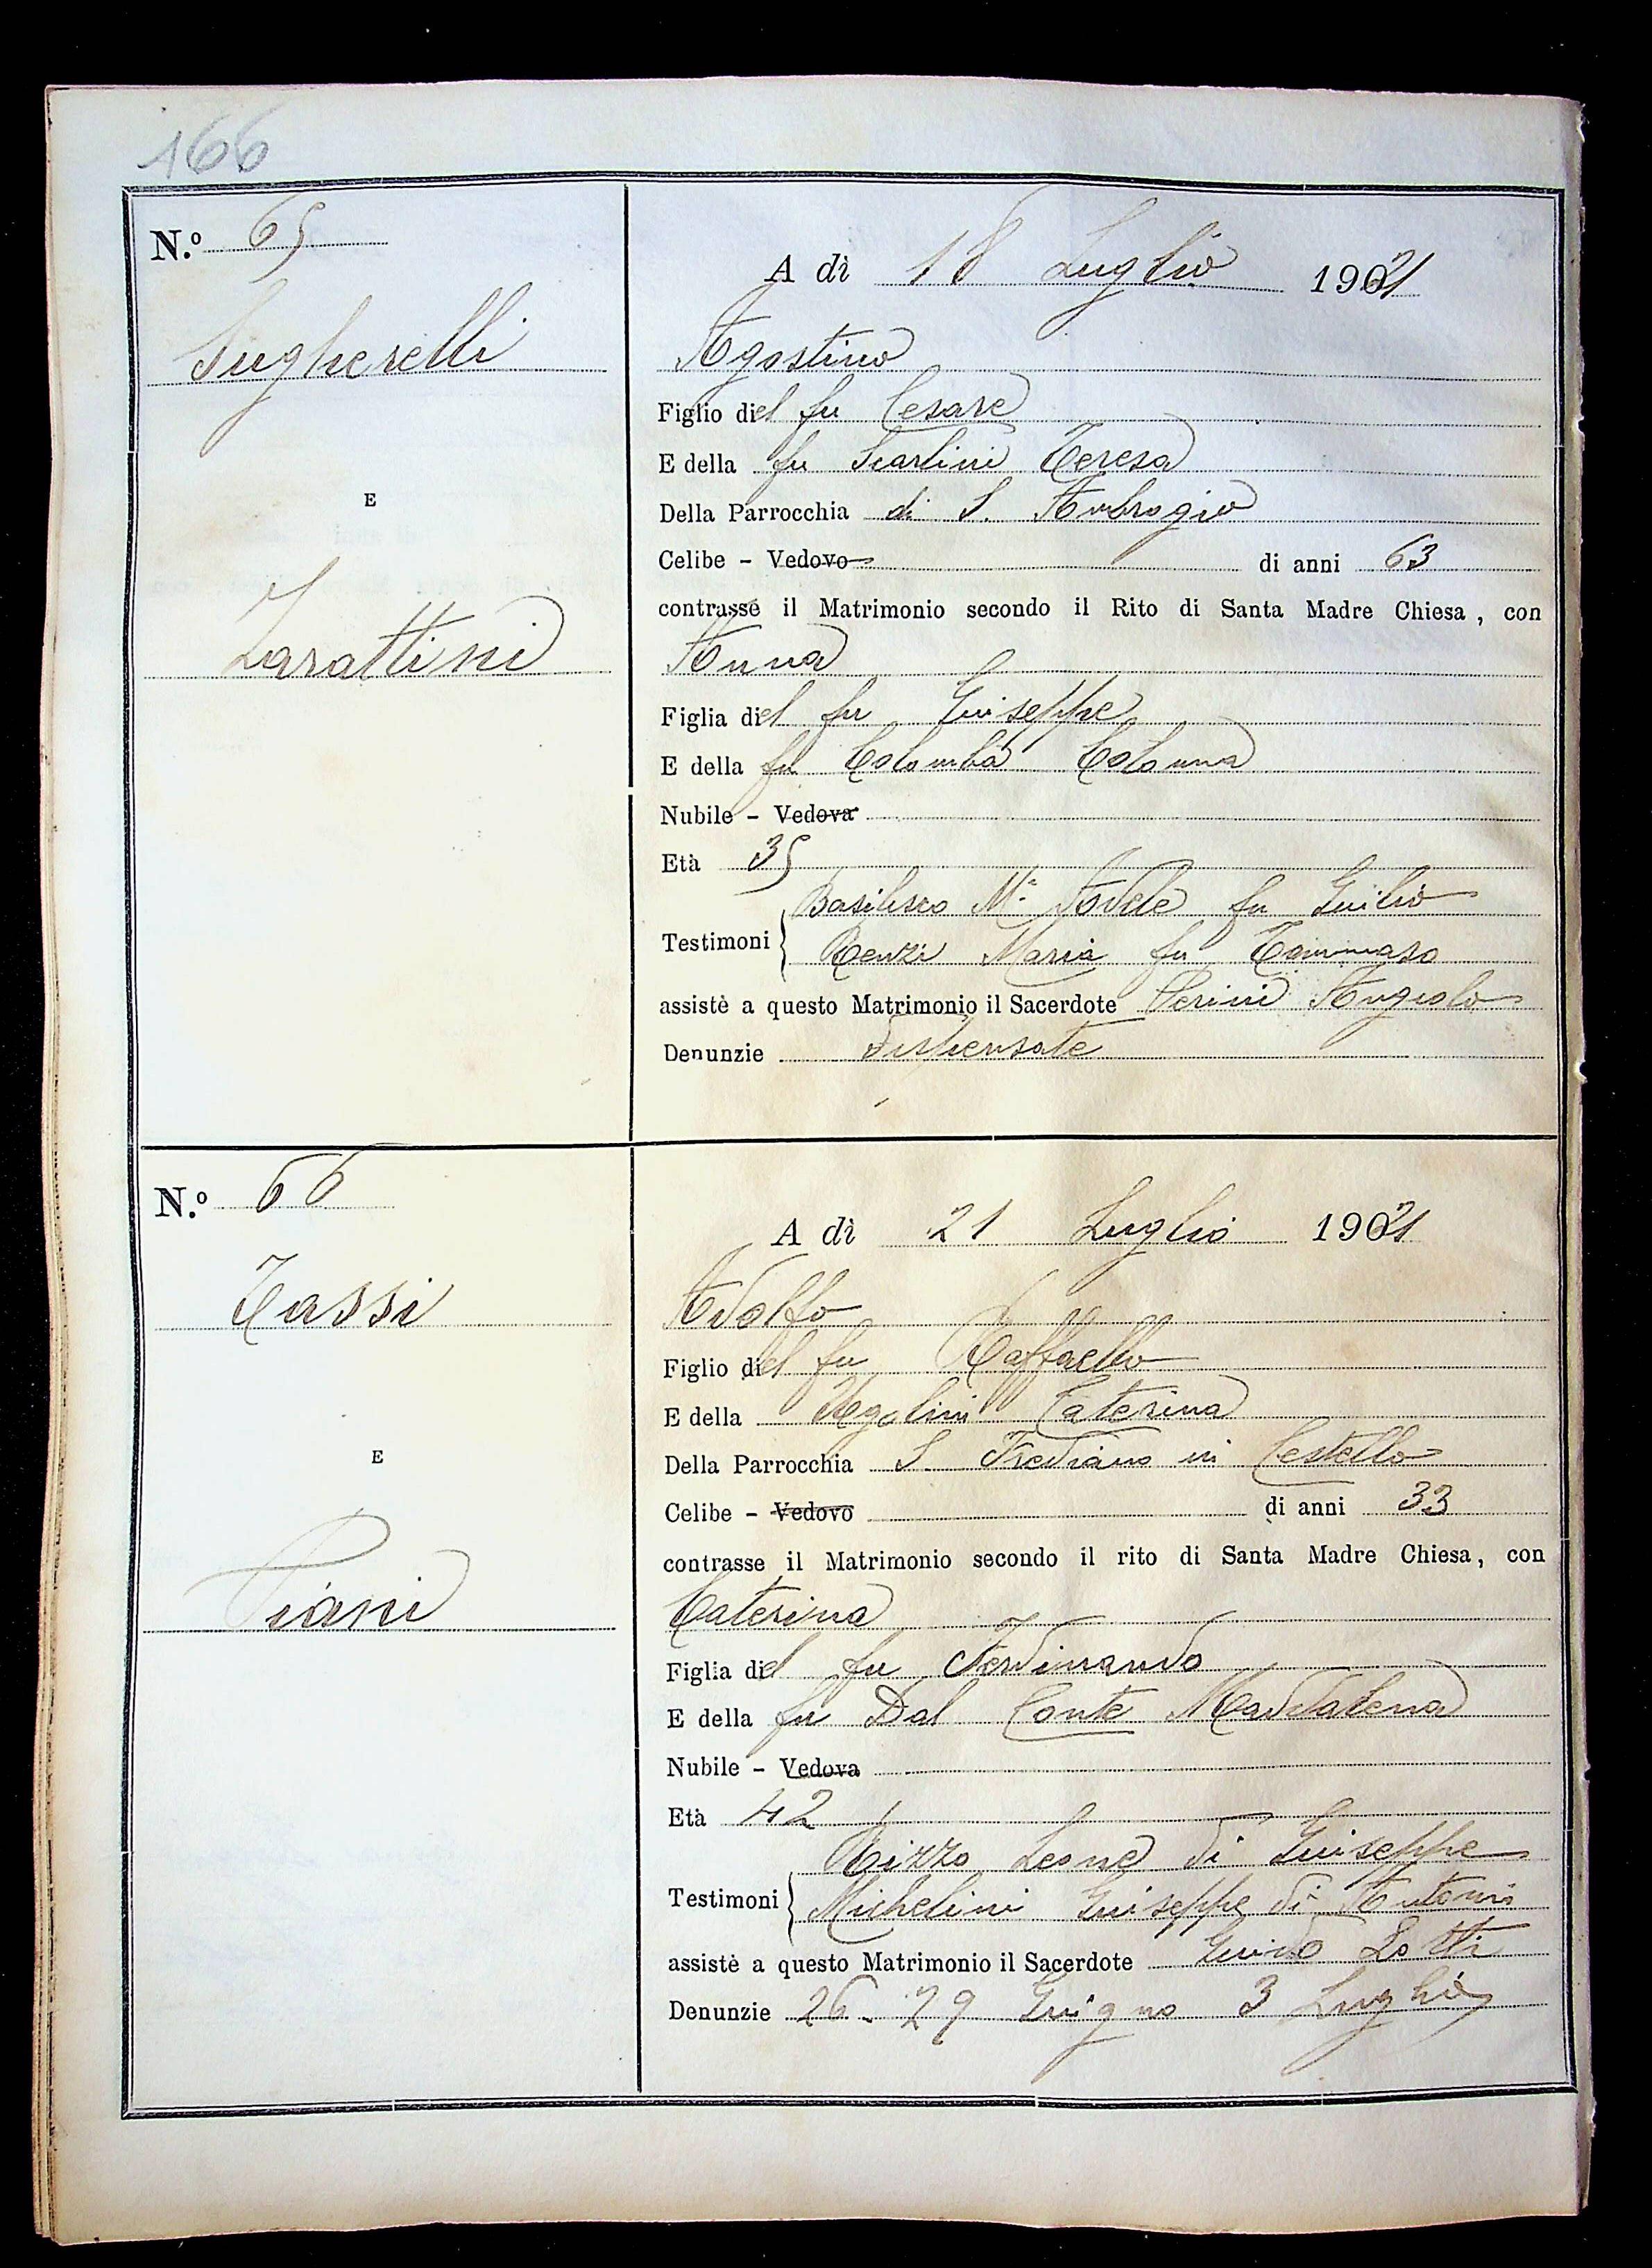 166
N.º 65
A dì 18 Luglio 1921
Sugherelli
Agostino
Figlio del fu Cesare
E della fu Scarlini Teresa
E
Della Parrocchia di S. Ambrogio
Celibe - Vedovo di anni 63
contrasse il Matrimonio secondo il Rito di Santa Madre Chiesa, con
Zarattini
Anna
Figlia del fu Giuseppe
E della fu Colomba Colonna
Nubile - Vedova
Età 35
Basilisco Mª Adele fu Giulio
Testimoni
Renzi Maria fu Tommaso
assistè a questo Matrimonio il Sacerdote Perini Angiolo
Denunzie Dispensate
N.º 66
A dì 21 Luglio 1921
Tassi
Adolfo
Figlio del fu Raffaello
E della Ugolini Caterina
E
Della Parrocchia S. Frediano in Cestello
Celibe - Vedovo di anni 33
contrasse il Matrimonio secondo il rito di Santa Madre Chiesa, con
Piani
Caterina
Figlia del fu Ferdinando
E della fu Dal Conte Maddalena
Nubile - Vedova
Età 42
Rizzo Leone di Giuseppe
Testimoni
Michelini Giuseppe di Antonio
assistè a questo Matrimonio il Sacerdote Guido Lotti
Denunzie 26 - 29 Giugno 3 Luglio